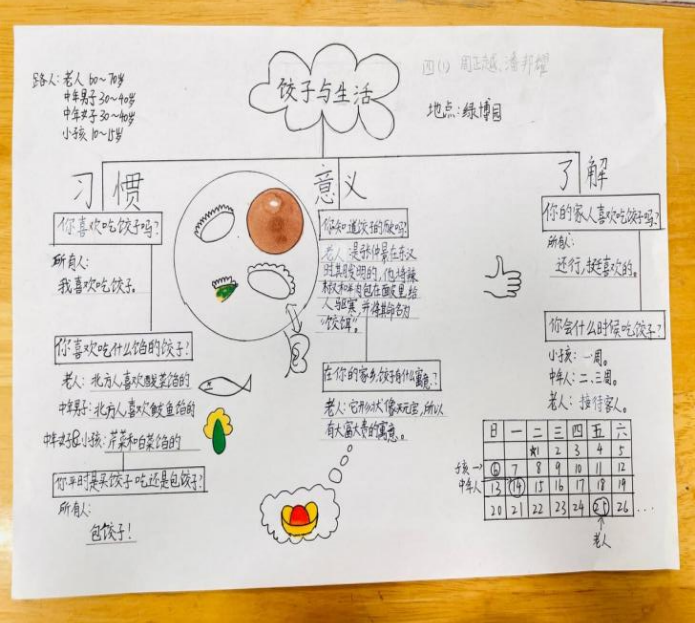 饺子与生活
四(1)
路人:老人 60~70岁
中年男子 30~40岁
中年女子 30~40岁
小孩 10~15岁
地点:绿博园
习惯
你喜欢吃饺子吗?
所有人:
我喜欢吃饺子。
你喜欢吃什么馅的饺子?
老人:北方人喜欢酸菜馅的
中年男子:北方人喜欢鲅鱼馅的
中年女子&小孩:芹菜和白菜馅的
你平时是买饺子吃还是包饺子?
所有人:
包饺子!
意义
你知道饺子的
老人:是张仲景在东汉
时其月发明的,他将辣
椒和羊肉包在面皮里给
人驱寒,并将其命名为
“饺饵”。
在你的家乡,饺子有什么寓意?
老人:它形状像天元宝,所以
有大富大贵的寓意。
了解
你的家人喜欢吃饺子吗?
所有人:
还行,挺喜欢的。
你会什么时候吃饺子?
小孩:一周。
中年人:二、三周。
老人:接待客人。
日 一 二 三 四 五 六
1 2 3 4 5
孩→ 6 7 8 9 10 11 12
中年人 13 14 15 16 17 18 19
20 21 22 23 24 25 26 ...
老人